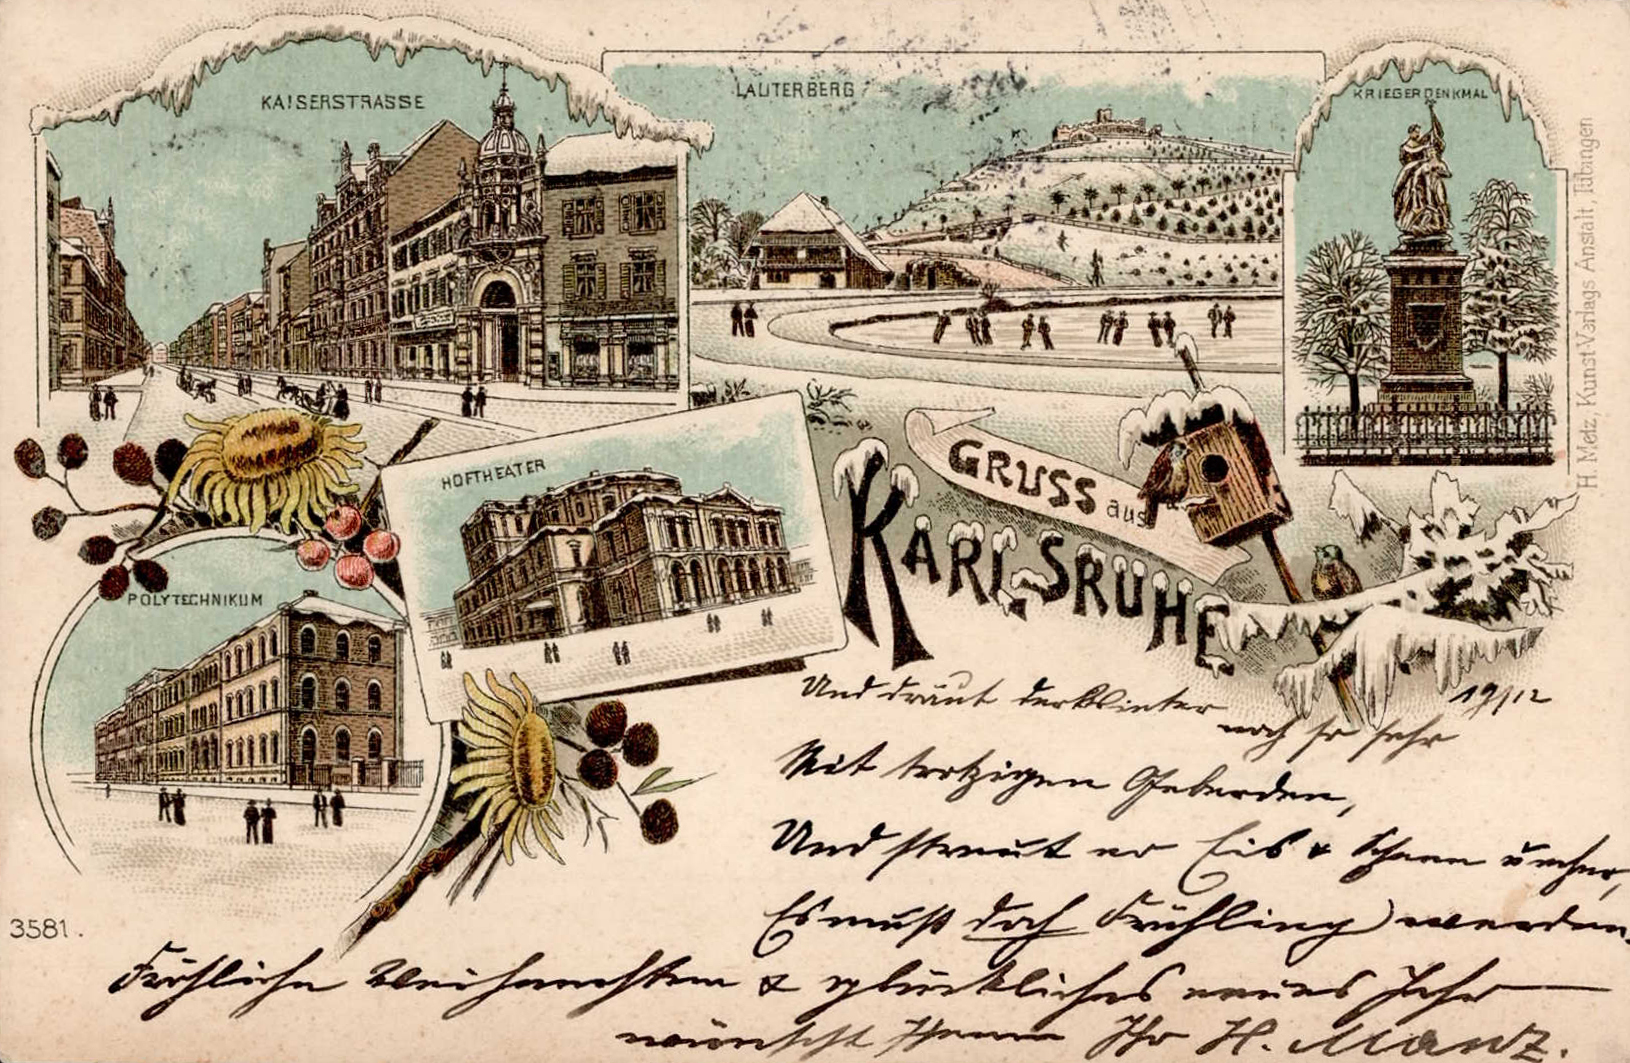 KAISERSTRASSE
LAUTERBERG
KRIEGERDENKMAL
H. Metz, Kunst-Verlags-Anstalt, Tübingen
HOFTHEATER
GRUSS aus
KARLSRUHE
POLYTECHNIKUM
19/12
Und dräut der Winter
noch so sehr
Mit trotzigen Geberden,
Und streut er Eis & Schnee umher,
Es muß doch Frühling werden.
3581.
Fröhliche Weihnachten & glückliches neues Jahr
wünscht Ihnen Ihr H. Mantz.